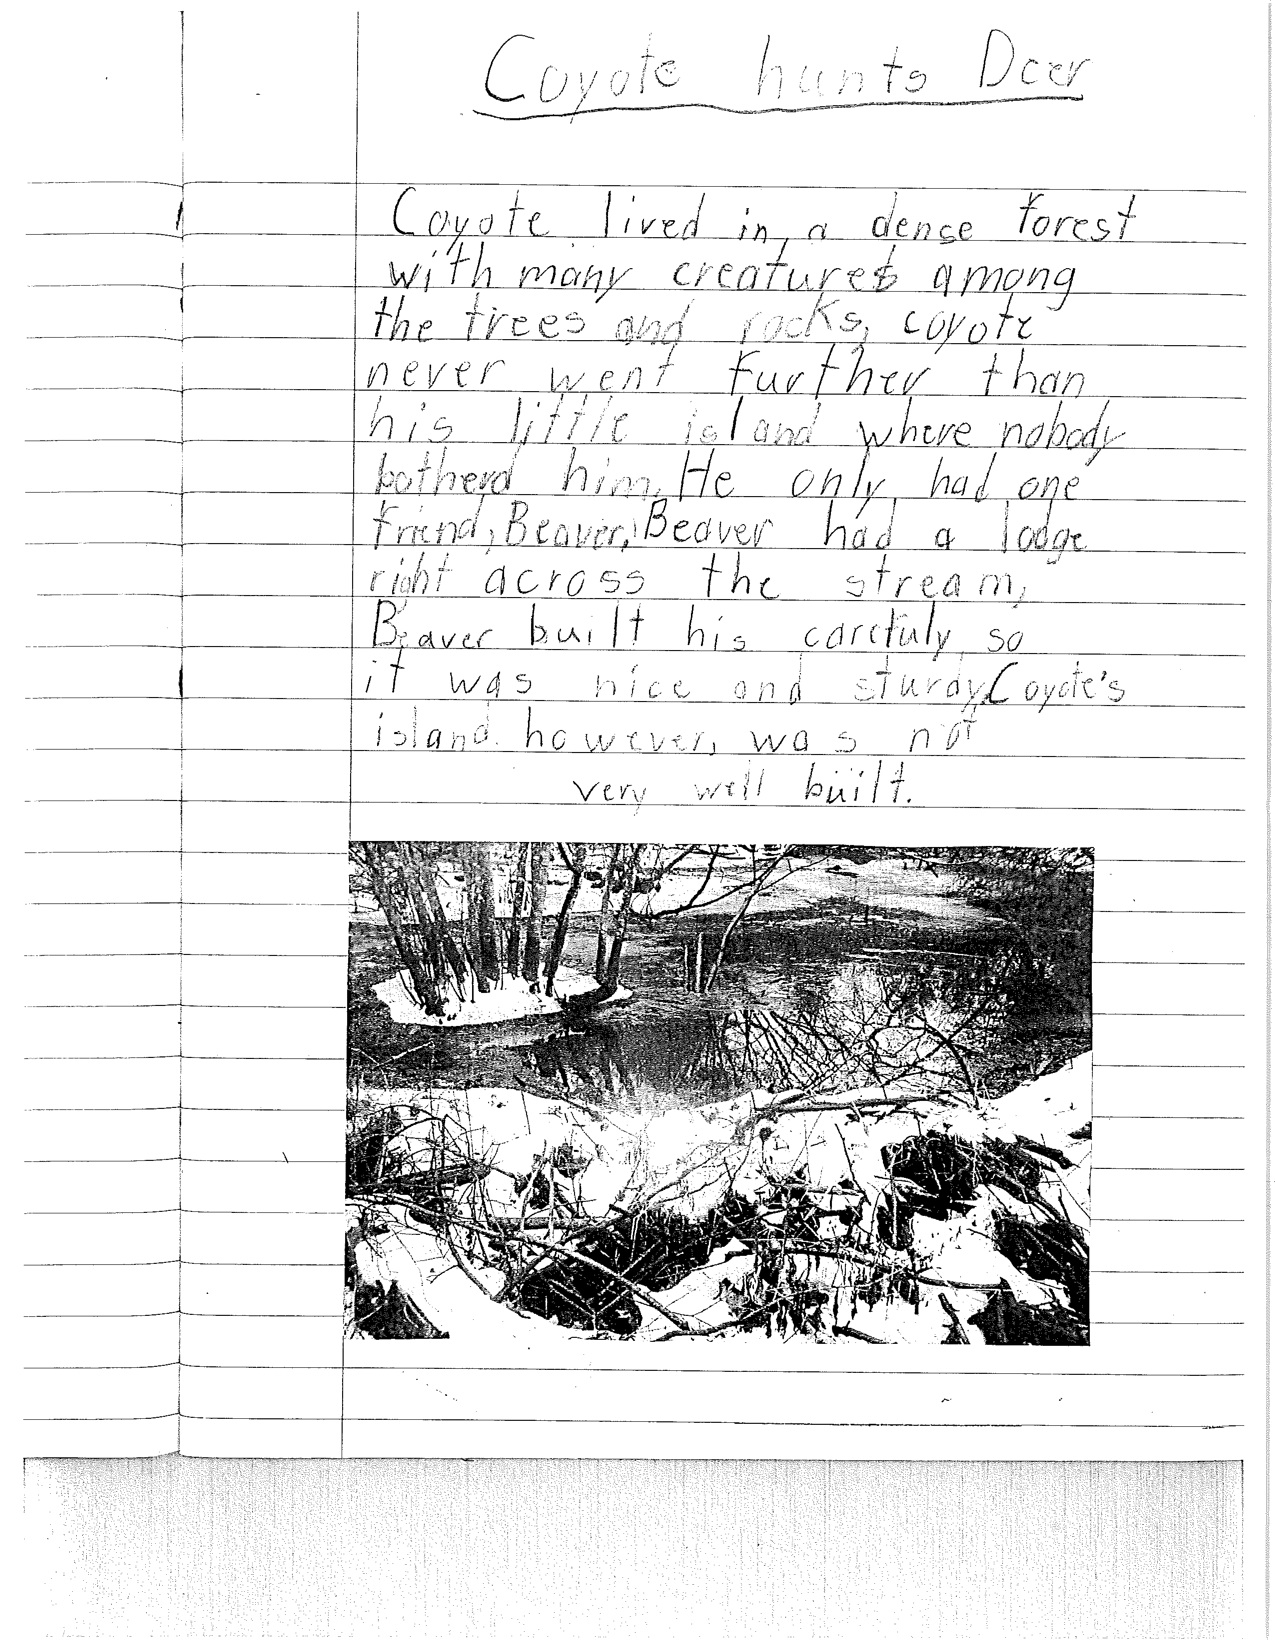 Coyote hunts Deer
Coyote lived in a dense forest
with many creatures among
the trees and rocks, coyote
never went further than
his little island where nobody
botherd him. He only had one
friend, Beaver. Beaver had a lodge
right across the stream,
Beaver built his carefuly so
it was nice and sturdy. Coyote's
island however, was not
very well built.